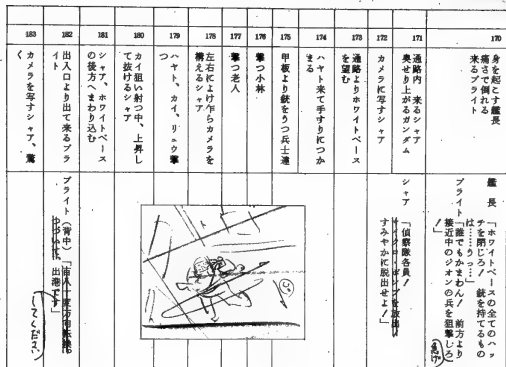 170
身を起こす艦長
痛さで倒れる
来るブライト
艦長
「ホワイトベースの全てのハッ
チを閉じろ! 銃を持てるもの
は……うっ…」
ブライト
「誰でもかまわん! 前方より
接近中のジオンの兵を狙撃しろ
!」
171
通路内 来るシャア
奥せり上がるガンダム
シャア
「偵察隊各員!
すみやかに脱出せよ!」
172
カメラに写すシャア
173
通路よりホワイトベース
を望む
174
ハヤト来て手すりにつか
まる
175
甲板より銃をうつ兵士達
176
撃つ小林
177
撃つ老人
178
左右によけ乍らカメラを
構えるシャア
179
ハヤト、カイ、リュウ撃
つ
180
カイ狙い射つ中、上昇し
て抜けるシャア
181
シャア、ホワイトベース
の後方へまわり込む
182
出入口より出て来るブラ
イト
ブライト(背中)
出港
してください
183
カメラを写すシャア、驚
く